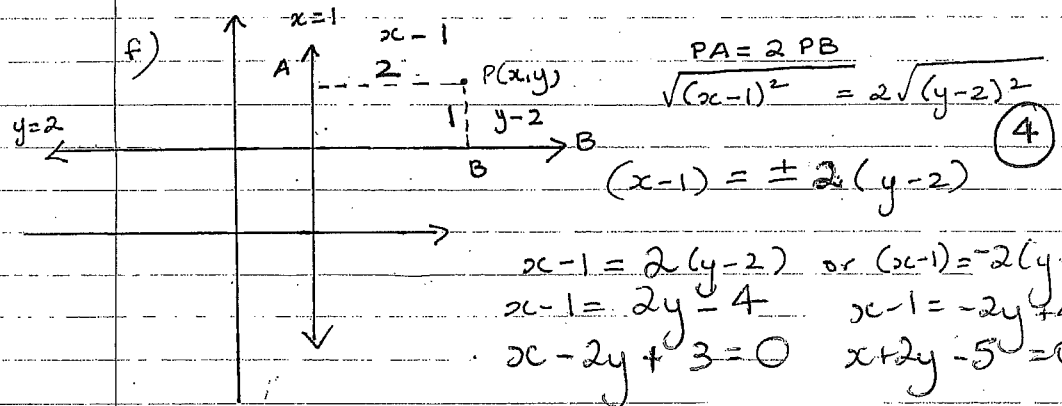 f)
x=1
x-1
A
2
P(x,y)
1
y-2
y=2
B
B
PA = 2 PB
√(x-1)² = 2√(y-2)²
4
(x-1) = ± 2(y-2)
x-1 = 2(y-2) or (x-1) = -2(y-
x-1 = 2y-4 x-1 = -2y+4
x-2y+3=0 x+2y-5=0